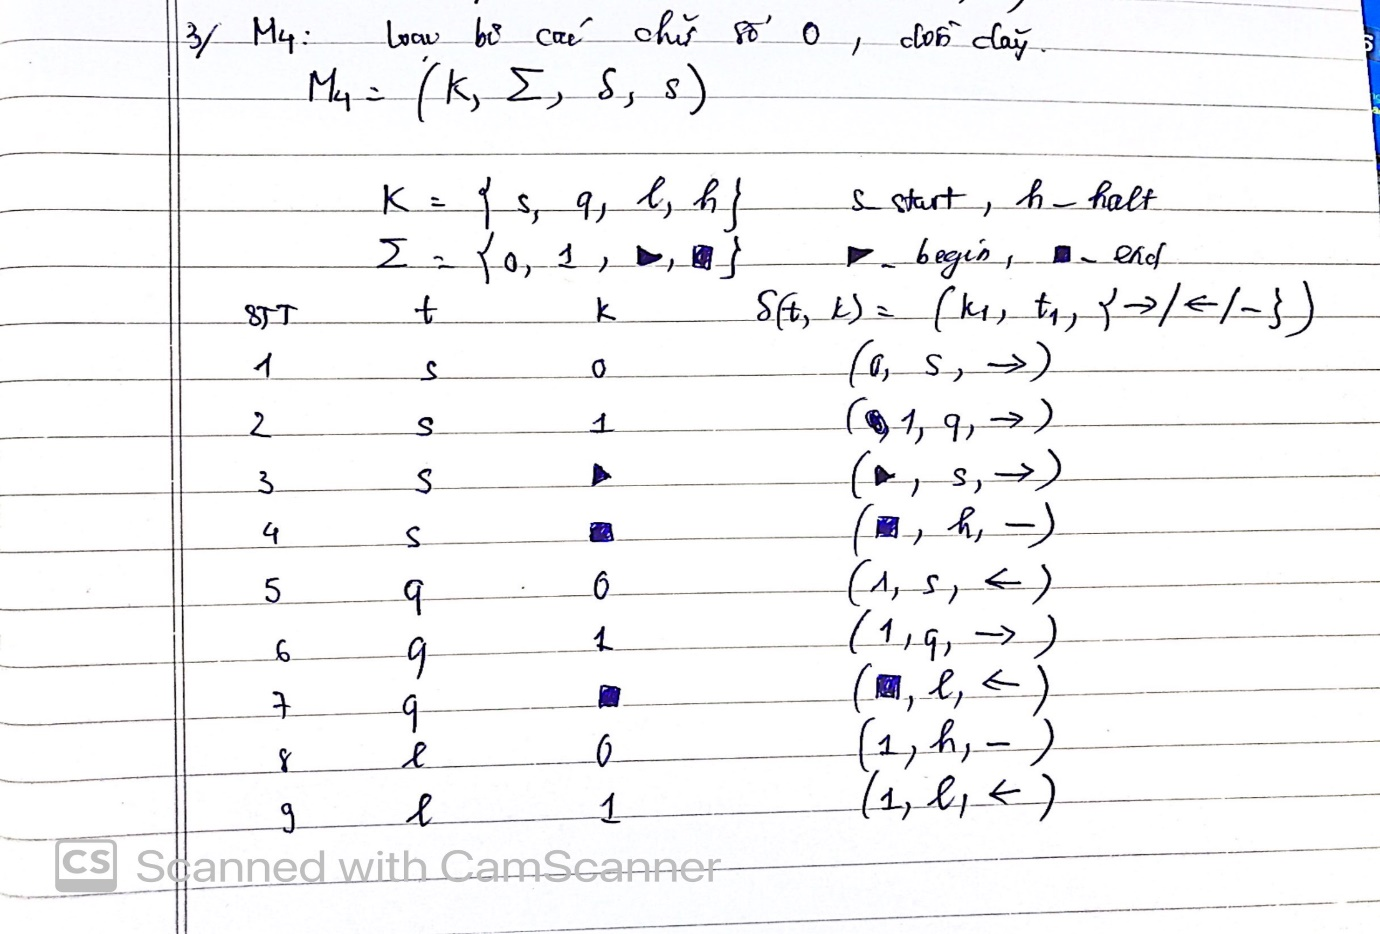 3/ M4: Loại bỏ các chữ số 0, dồn dãy.
M4 = (K, Σ, δ, s)
K = { s, q, l, h} s_start, h_halt
Σ = {0, 1, ▶, ■} ▶_begin, ■_end
STT t k δ(t, k) = (k1, t1, {→/←/-})
1 s 0 (0, s, →)
2 s 1 (1, q, →)
3 s ▶ (▶, s, →)
4 s ■ (■, h, -)
5 q 0 (1, s, ←)
6 q 1 (1, q, →)
7 q ■ (■, l, ←)
8 l 0 (1, h, -)
9 l 1 (1, l, ←)
CS Scanned with CamScanner